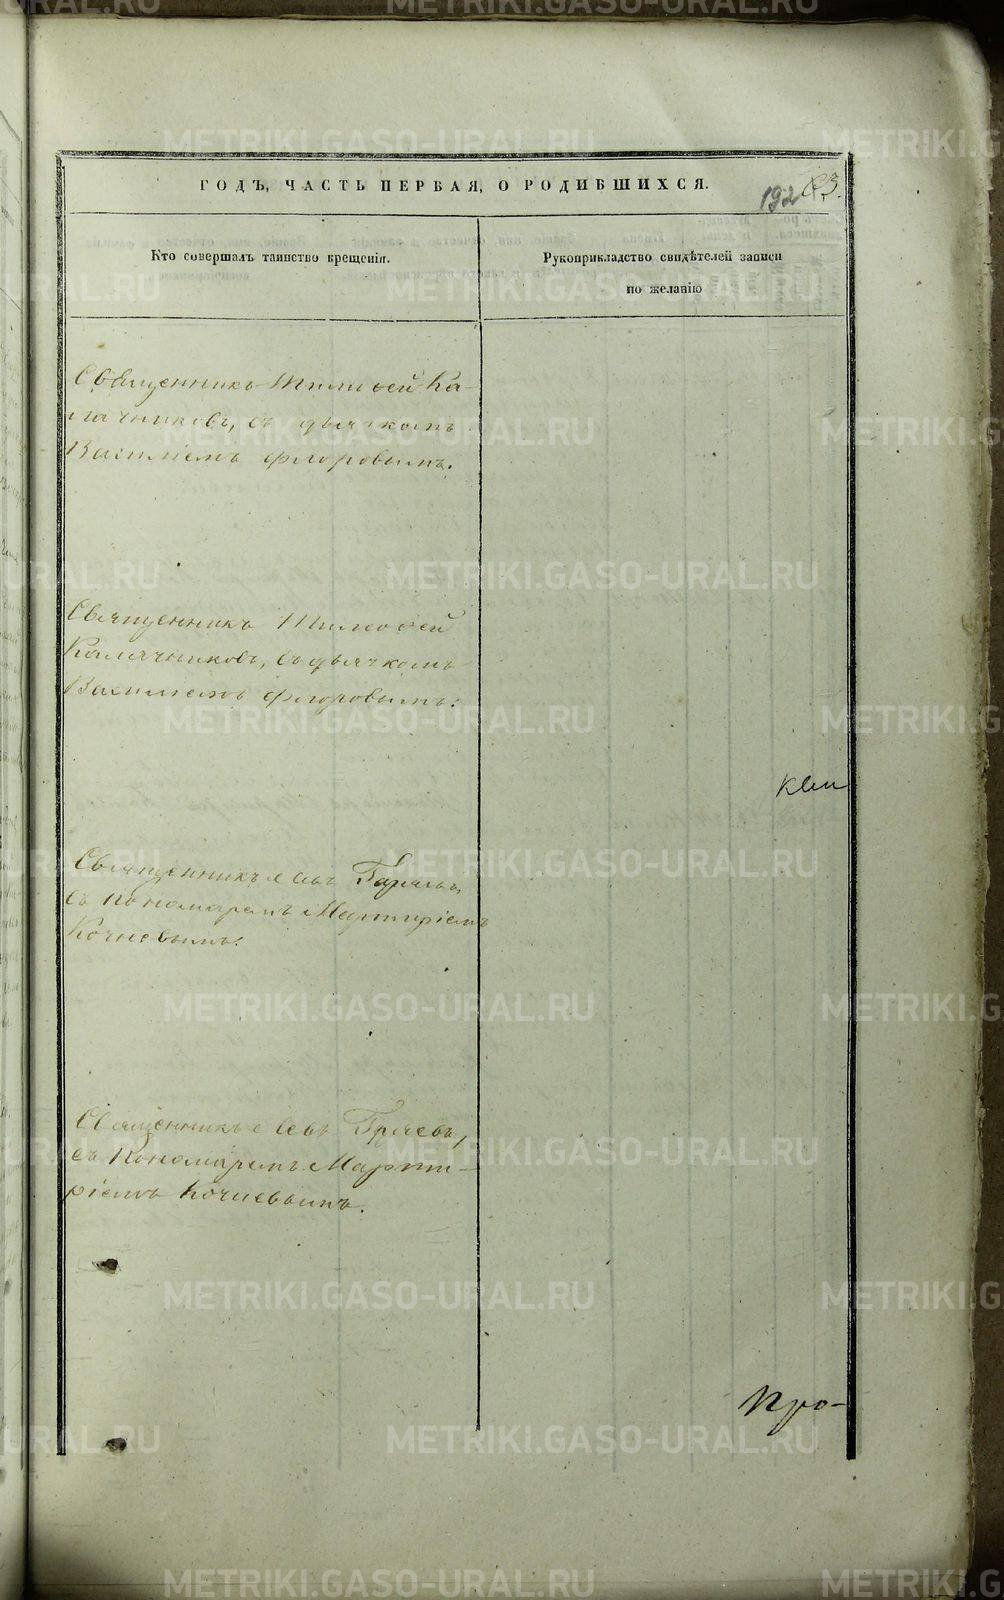 ГОДЪ, ЧАСТЬ ПЕРВАЯ, О РОДИВШИХСЯ.
192
Кто совершалъ таинство крещенія.
Рукоприкладство свидѣтелей записи
по желанію
Священникъ Тимоѳей Ка-
лачниковъ, съ дьячкомъ
Василіемъ Флоровымъ.
Священникъ Тимоѳей
Калачниковъ, съ дьячкомъ
Василіемъ Флоровымъ.
Священникъ Левъ
съ пономаремъ Мартиріемъ
Кочневымъ.
Священникъ Левъ Грячевъ,
съ Пономаремъ Марти-
ріемъ Кочневымъ.
Про-
METRIKI.GASO-URAL.RU